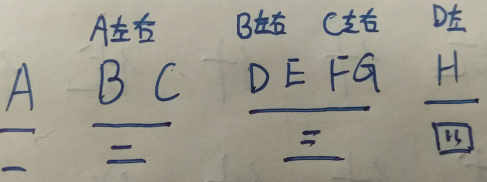 A左右 B左右 C左右 D左
A B C D E F G H
一 二 三 四